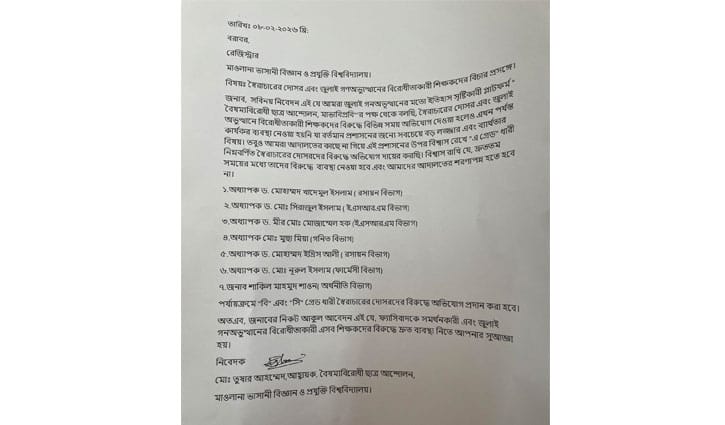 তারিখঃ ০৮-০২-২০২৬ খ্রি:
বরাবর,
রেজিস্ট্রার
মাওলানা ভাসানী বিজ্ঞান ও প্রযুক্তি বিশ্ববিদ্যালয়।
বিষয়ঃ স্বৈরাচারের দোসর এবং জুলাই গণঅভুত্থানের বিরোধীতাকারী শিক্ষকদের বিচার প্রসঙ্গে।
জনাব, সবিনয় নিবেদন এই যে আমরা জুলাই গনঅভুত্থানের মতো ইতিহাস সৃষ্টিকারী প্লাটফর্ম "
বৈষম্যবিরোধী ছাত্র আন্দোলন, মাভাবিপ্রবি"র পক্ষ থেকে বলছি, স্বৈরাচারের দোসর এবং জুলাই
অভুত্থানে বিরোধীতাকারী শিক্ষকদের বিরুদ্ধে বিভিন্ন সময় অভিযোগ দেওয়া হলেও এখন পর্যন্ত
কার্যকর ব্যবস্থা নেওয়া হয়নি যা বর্তমান প্রশাসনের জন্যে সবচেয়ে বড় লজ্জার এবং ব্যার্থতার
বিষয়। তবুও আমরা আদালতের কাছে না গিয়ে এই প্রশাসনের উপর বিশ্বাস রেখে "এ গ্রেড" ধারী
নিম্নবর্ণিত স্বৈরাচারের দোসরদের বিরুদ্ধে অভিযোগ দায়ের করছি। বিশ্বাস রাখি যে, দ্রুততম
সময়ের মধ্যে তাদের বিরুদ্ধে ব্যবস্থা নেওয়া হবে এবং আমাদের আদালতের শরণাপন্ন হতে হবে
না।
১.অধ্যাপক ড. মোহাম্মদ খাদেমুল ইসলাম ( রসায়ন বিভাগ)
২.অধ্যাপক ড. মোঃ সিরাজুল ইসলাম ( ইএসআরএম বিভাগ)
৩.অধ্যাপক ড. মীর মোঃ মোজাম্মেল হক (ইএসআরএম বিভাগ)
৪.অধ্যাপক মোঃ মুছা মিয়া (গনিত বিভাগ)
৫.অধ্যাপক ড. মোহাম্মদ ইদ্রিস আলী ( রসায়ন বিভাগ)
৬.অধ্যাপক ড. মোঃ নূরুল ইসলাম (ফার্মেসী বিভাগ)
৭.জনাব শাকিল মাহমুদ শাওন( অর্থনীতি বিভাগ)
পর্যায়ক্রমে "বি" এবং "সি" গ্রেড ধারী স্বৈরাচারের দোসরদের বিরুদ্ধে অভিযোগ প্রদান করা হবে।
অতএব, জনাবের নিকট আকুল আবেদন এই যে, ফ্যাসিবাদকে সমর্থনকারী এবং জুলাই
গনঅভুত্থানের বিরোধীতাকারী এসব শিক্ষকদের বিরুদ্ধে দ্রুত ব্যবস্থা নিতে আপনার সুআজ্ঞা
হয়।
নিবেদক
মোঃ তুষার আহম্মেদ,আহ্বায়ক, বৈষম্যবিরোধী ছাত্র আন্দোলন,
মাওলানা ভাসানী বিজ্ঞান ও প্রযুক্তি বিশ্ববিদ্যালয়।